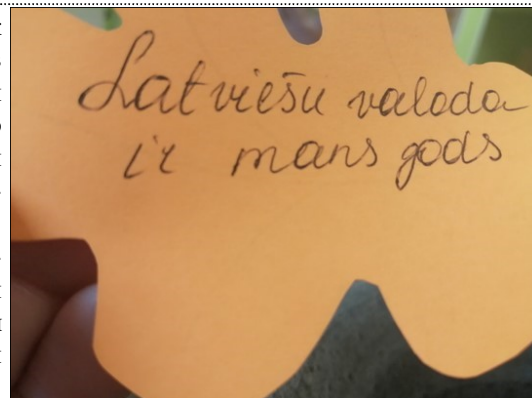 Latviešu valoda
ir mans gods